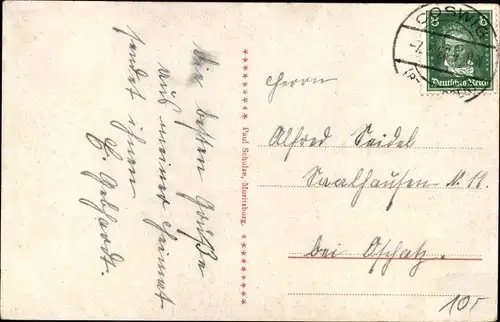 Die besten Grüße
aus meiner Heimat
sendet ihnen
E. Gebhardt.
Paul Schulze, Moritzburg.
COSWIG
8 8
Deutsches Reich
Herrn
Alfred Seidel
Saalhausen N. 11.
bei Oschatz.
105